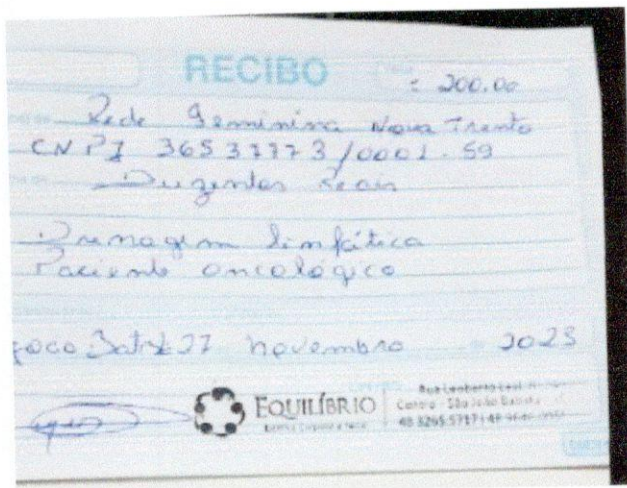 RECIBO
: 200,00
Rede Feminina Nova Trento
CNPJ 36537773/0001-59
Duzentos Reais
Drenagem linfática
Paciente oncológico
27 novembro 2023
EQUILÍBRIO
Rua Leoberto Leal
Centro - São João Batista
48 3265.5717 | 48